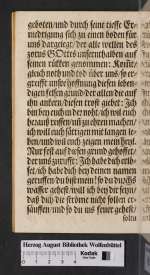 geboten/ und durch seine tieffe Er
niedrigung sich zu einem boden für
uns dargelegt/ der alle wellen des
zorns GOttes unserthalben auf
seinen rücken genommen: Komt
gleich noth und tod über uns/ so er
greifft unser hoffnung diesen leben
digen felsen grund der allen die auf
ihn ankern/ diesen trost giebet: Ich
bin bey euch in der noth/ ich wil euch
heraus reissen und zu ehren machen/
ich will euch sättigen mit langen le
ben/ und wil euch zeigen mein heyl.
Nur fest auf diesen grund gehoffet/
der uns zurufft: Ich habe dich erlö
set/ ich habe dich bey deinen namen
geruffen du bist mein! so du durchs
wasser gehest/ will ich bey dir seyn/
daß dich die ströme nicht sollen er
säuffen/ und so du ins feuer gehest/
solten
Herzog August Bibliothek Wolfenbüttel
Kodak